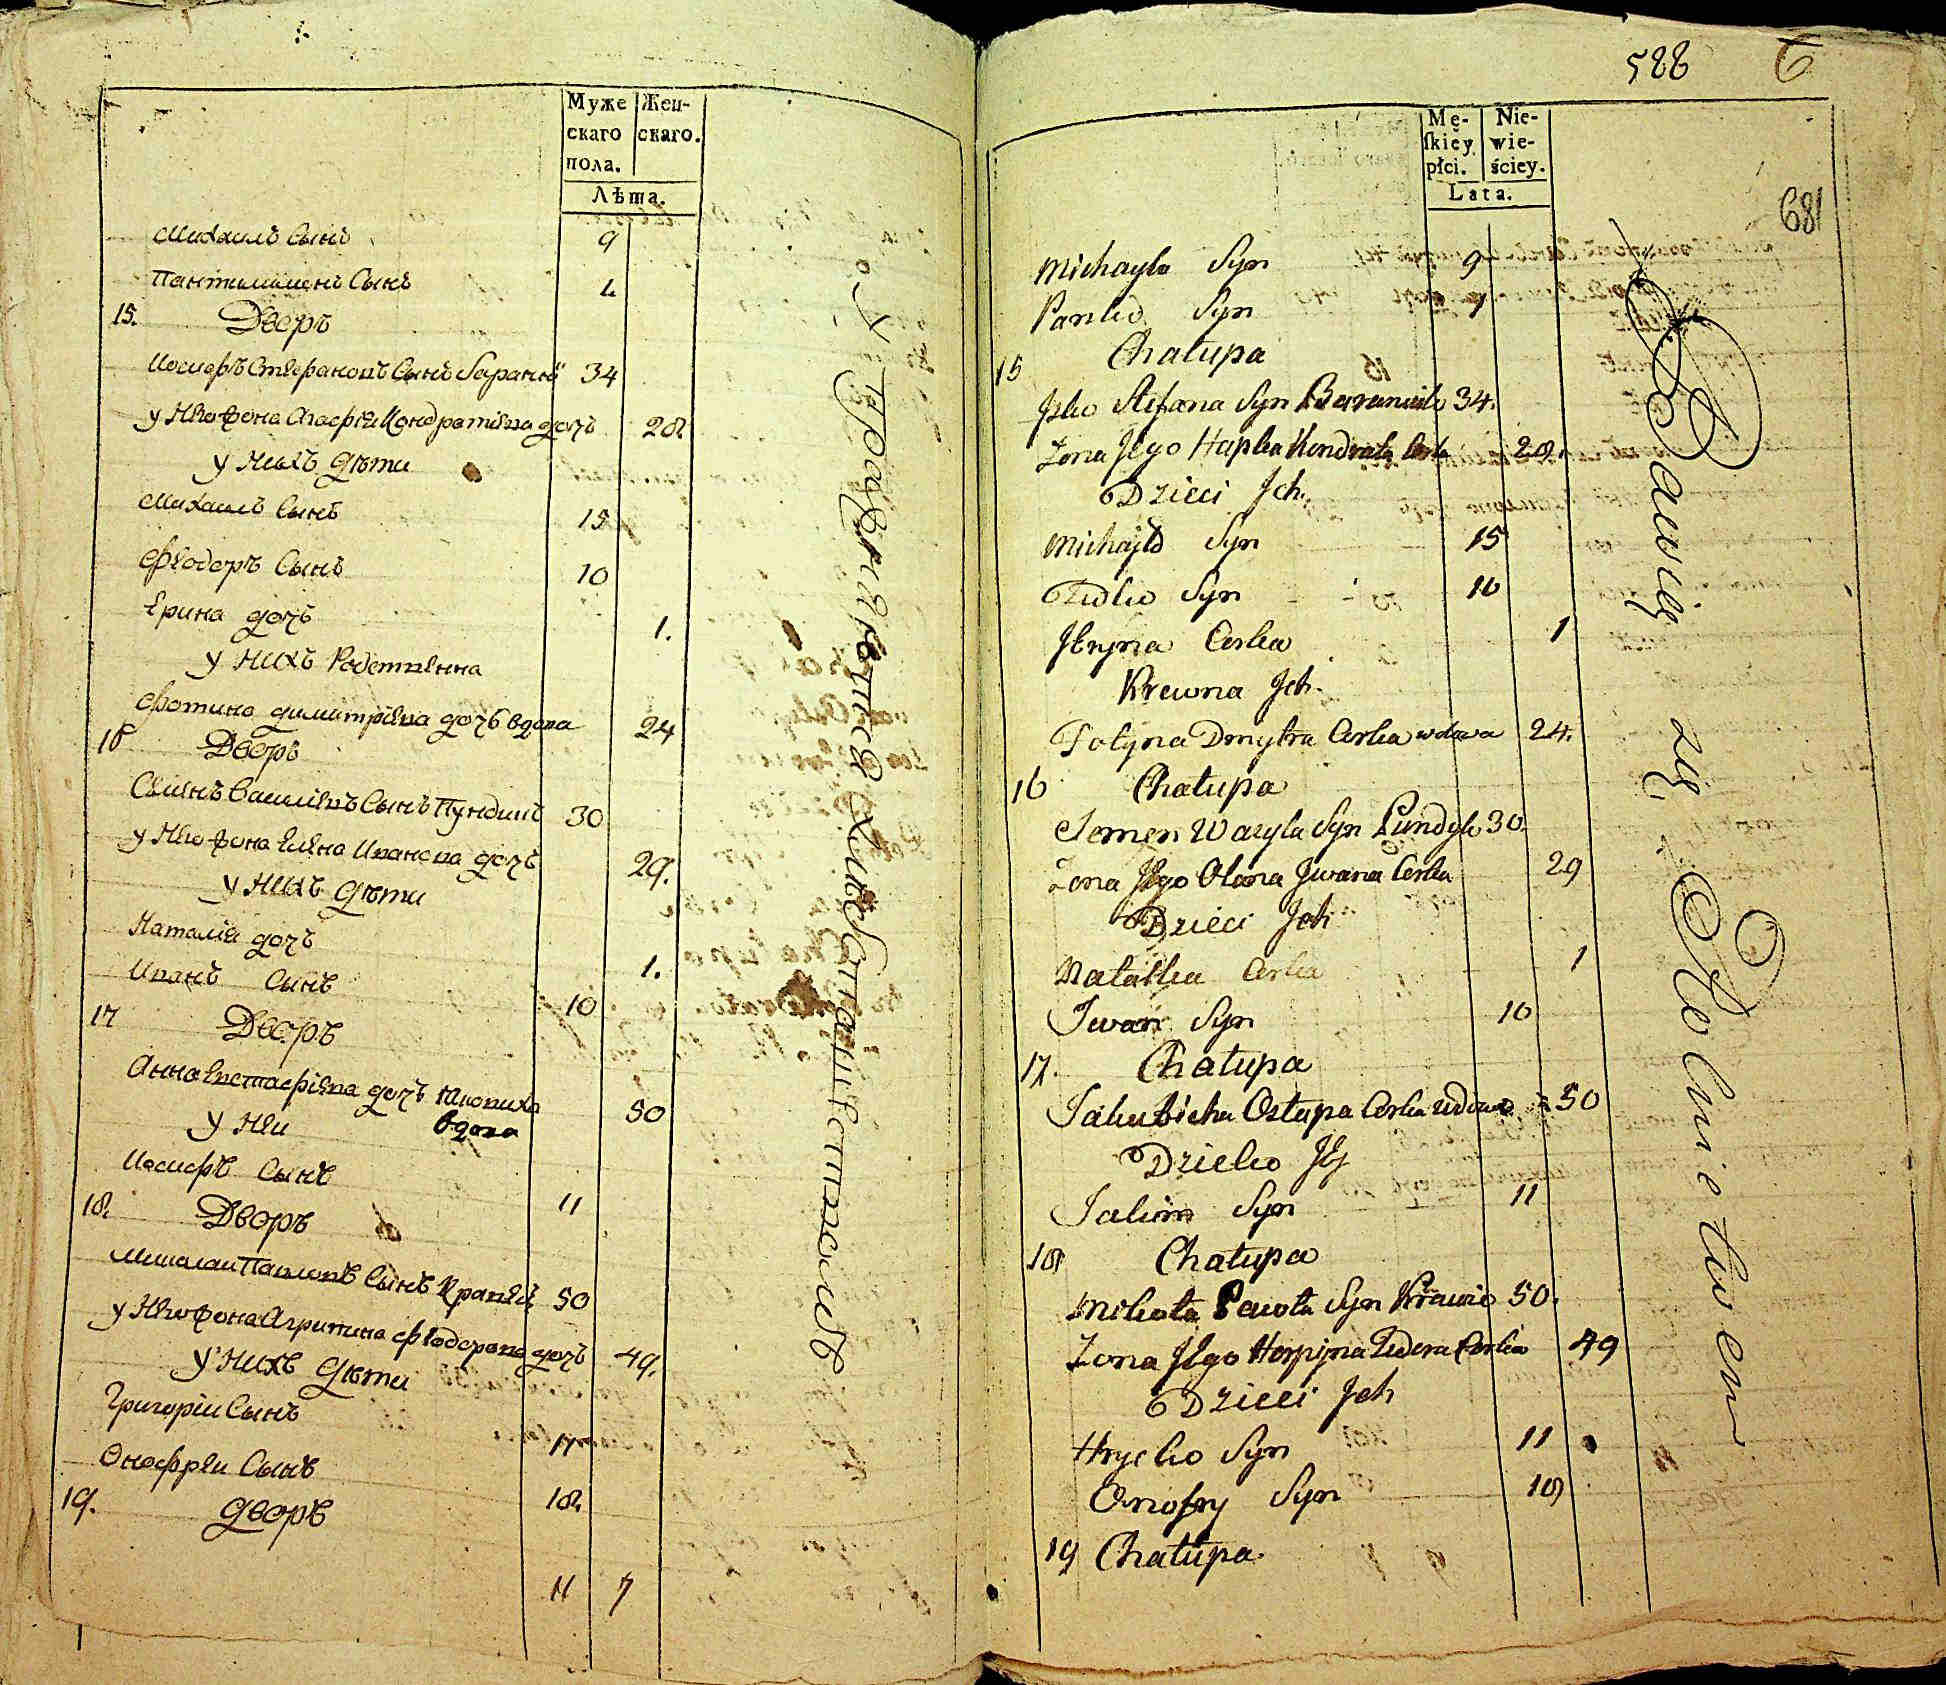 Муже
скаго
пола.
Жен-
скаго.
Лѣта.
Михаилъ Сынъ 9
Пантилимонъ Сынъ 1
15. Дворъ
Иосифъ Стефановъ Сынъ Баранъ 34
у Него жона Агафія Кондратіева дочъ 28
у Нихъ дѣти
Михаилъ Сынъ 15
Феодоръ Сынъ 10
Ерина дочъ 1.
у Нихъ
Фотина димитріева дочъ вдова 24
16 Дворъ
Семенъ Василіевъ Сынъ Пундикъ 30
у Него жона Елена Иванова дочъ 29.
у Нихъ дѣти
Наталія дочъ 1.
Иванъ Сынъ 10
17 Дворъ
Анна Евстафіева дочъ 50
у Неи вдова
Иосифъ Сынъ 11
18. Дворъ
Миколаи Павловъ Сынъ Кравец 50
у Него жона Агрипина Феодорова дочъ 49.
у Нихъ дѣти
Григоріи Сынъ 11
Онофреи Сынъ 18.
19. дворъ
11 7
588 6
681
Mę-
skiey
płci.
Nie-
wie-
ściey.
Lata.
Michayło Syn 9
Panko Syn 1
15 Chałupa
Jsko Stefana Syn 34.
Zona Jego Hapka Kondrata Corka 28.
Dzieci Jch.
Michayło Syn 15
Fedko Syn 10
Jryna Corka 1
Krewna Jch.
Fotyna Dmytra Corka wdowa 24.
16 Chałupa
Semen Wasyla Syn Pundyk 30.
Zona Jego Ołena Jwana Corka 29
Dzieci Jch
Natałka Corka 1
Jwan Syn 10
17. Chałupa
Jakubicha Ostapa Corka wdowa 50
Dziecko Jey
Syn 11
18 Chałupa
Mikoła Pawła Syn Krawic 50.
Zona Jego Horpyna Fedora Corka 49
Dzieci Jch
Hryćko Syn 11
Onofry Syn 18
19 Chałupa.